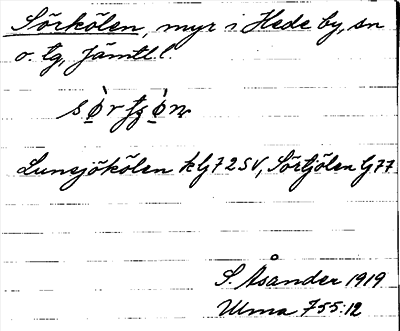 Sörkölen, myr i Hede by, sn
o. tg, Jämtl. l.
Lunsjökölen klg 72 SV, Sörtjölen G77
S. Åsander 1919
Ulma 755:12